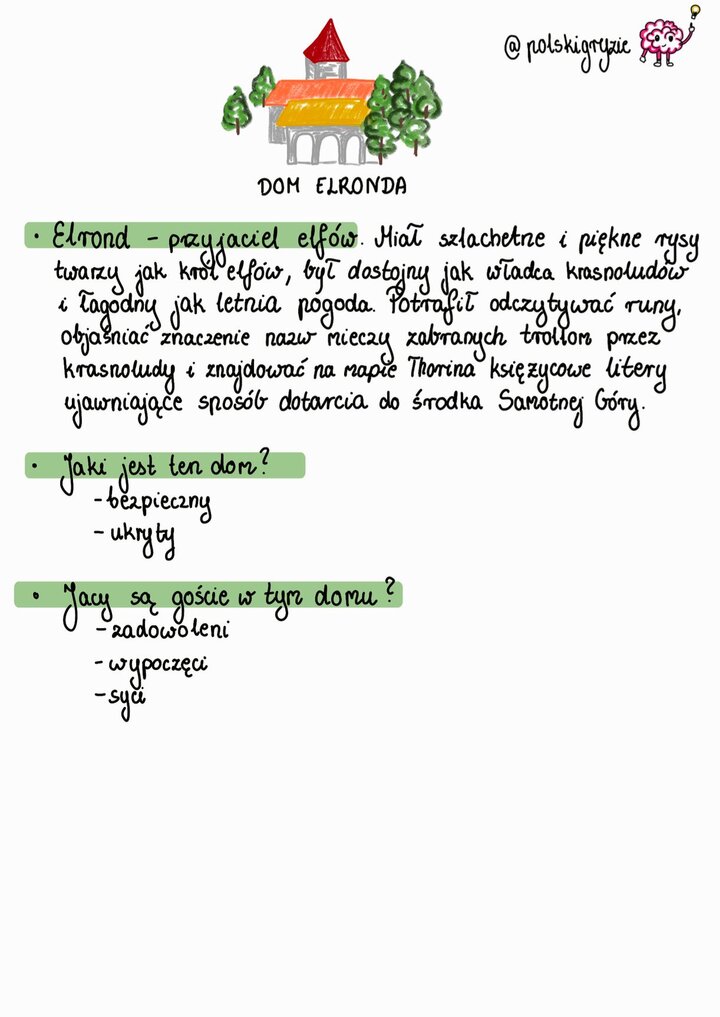 @polskigryzie
DOM ELRONDA
• Elrond - przyjaciel elfów. Miał szlachetne i piękne rysy
twarzy jak król elfów, był dostojny jak władca krasnoludów
i łagodny jak letnia pogoda. Potrafił odczytywać runy,
objaśniać znaczenie nazw mieczy zabranych trollom przez
krasnoludy i znajdować na mapie Thorina księżycowe litery
ujawniające sposób dotarcia do środka Samotnej Góry.
• Jaki jest ten dom?
- bezpieczny
- ukryty
• Jacy są goście w tym domu?
- zadowoleni
- wypoczęci
- syci